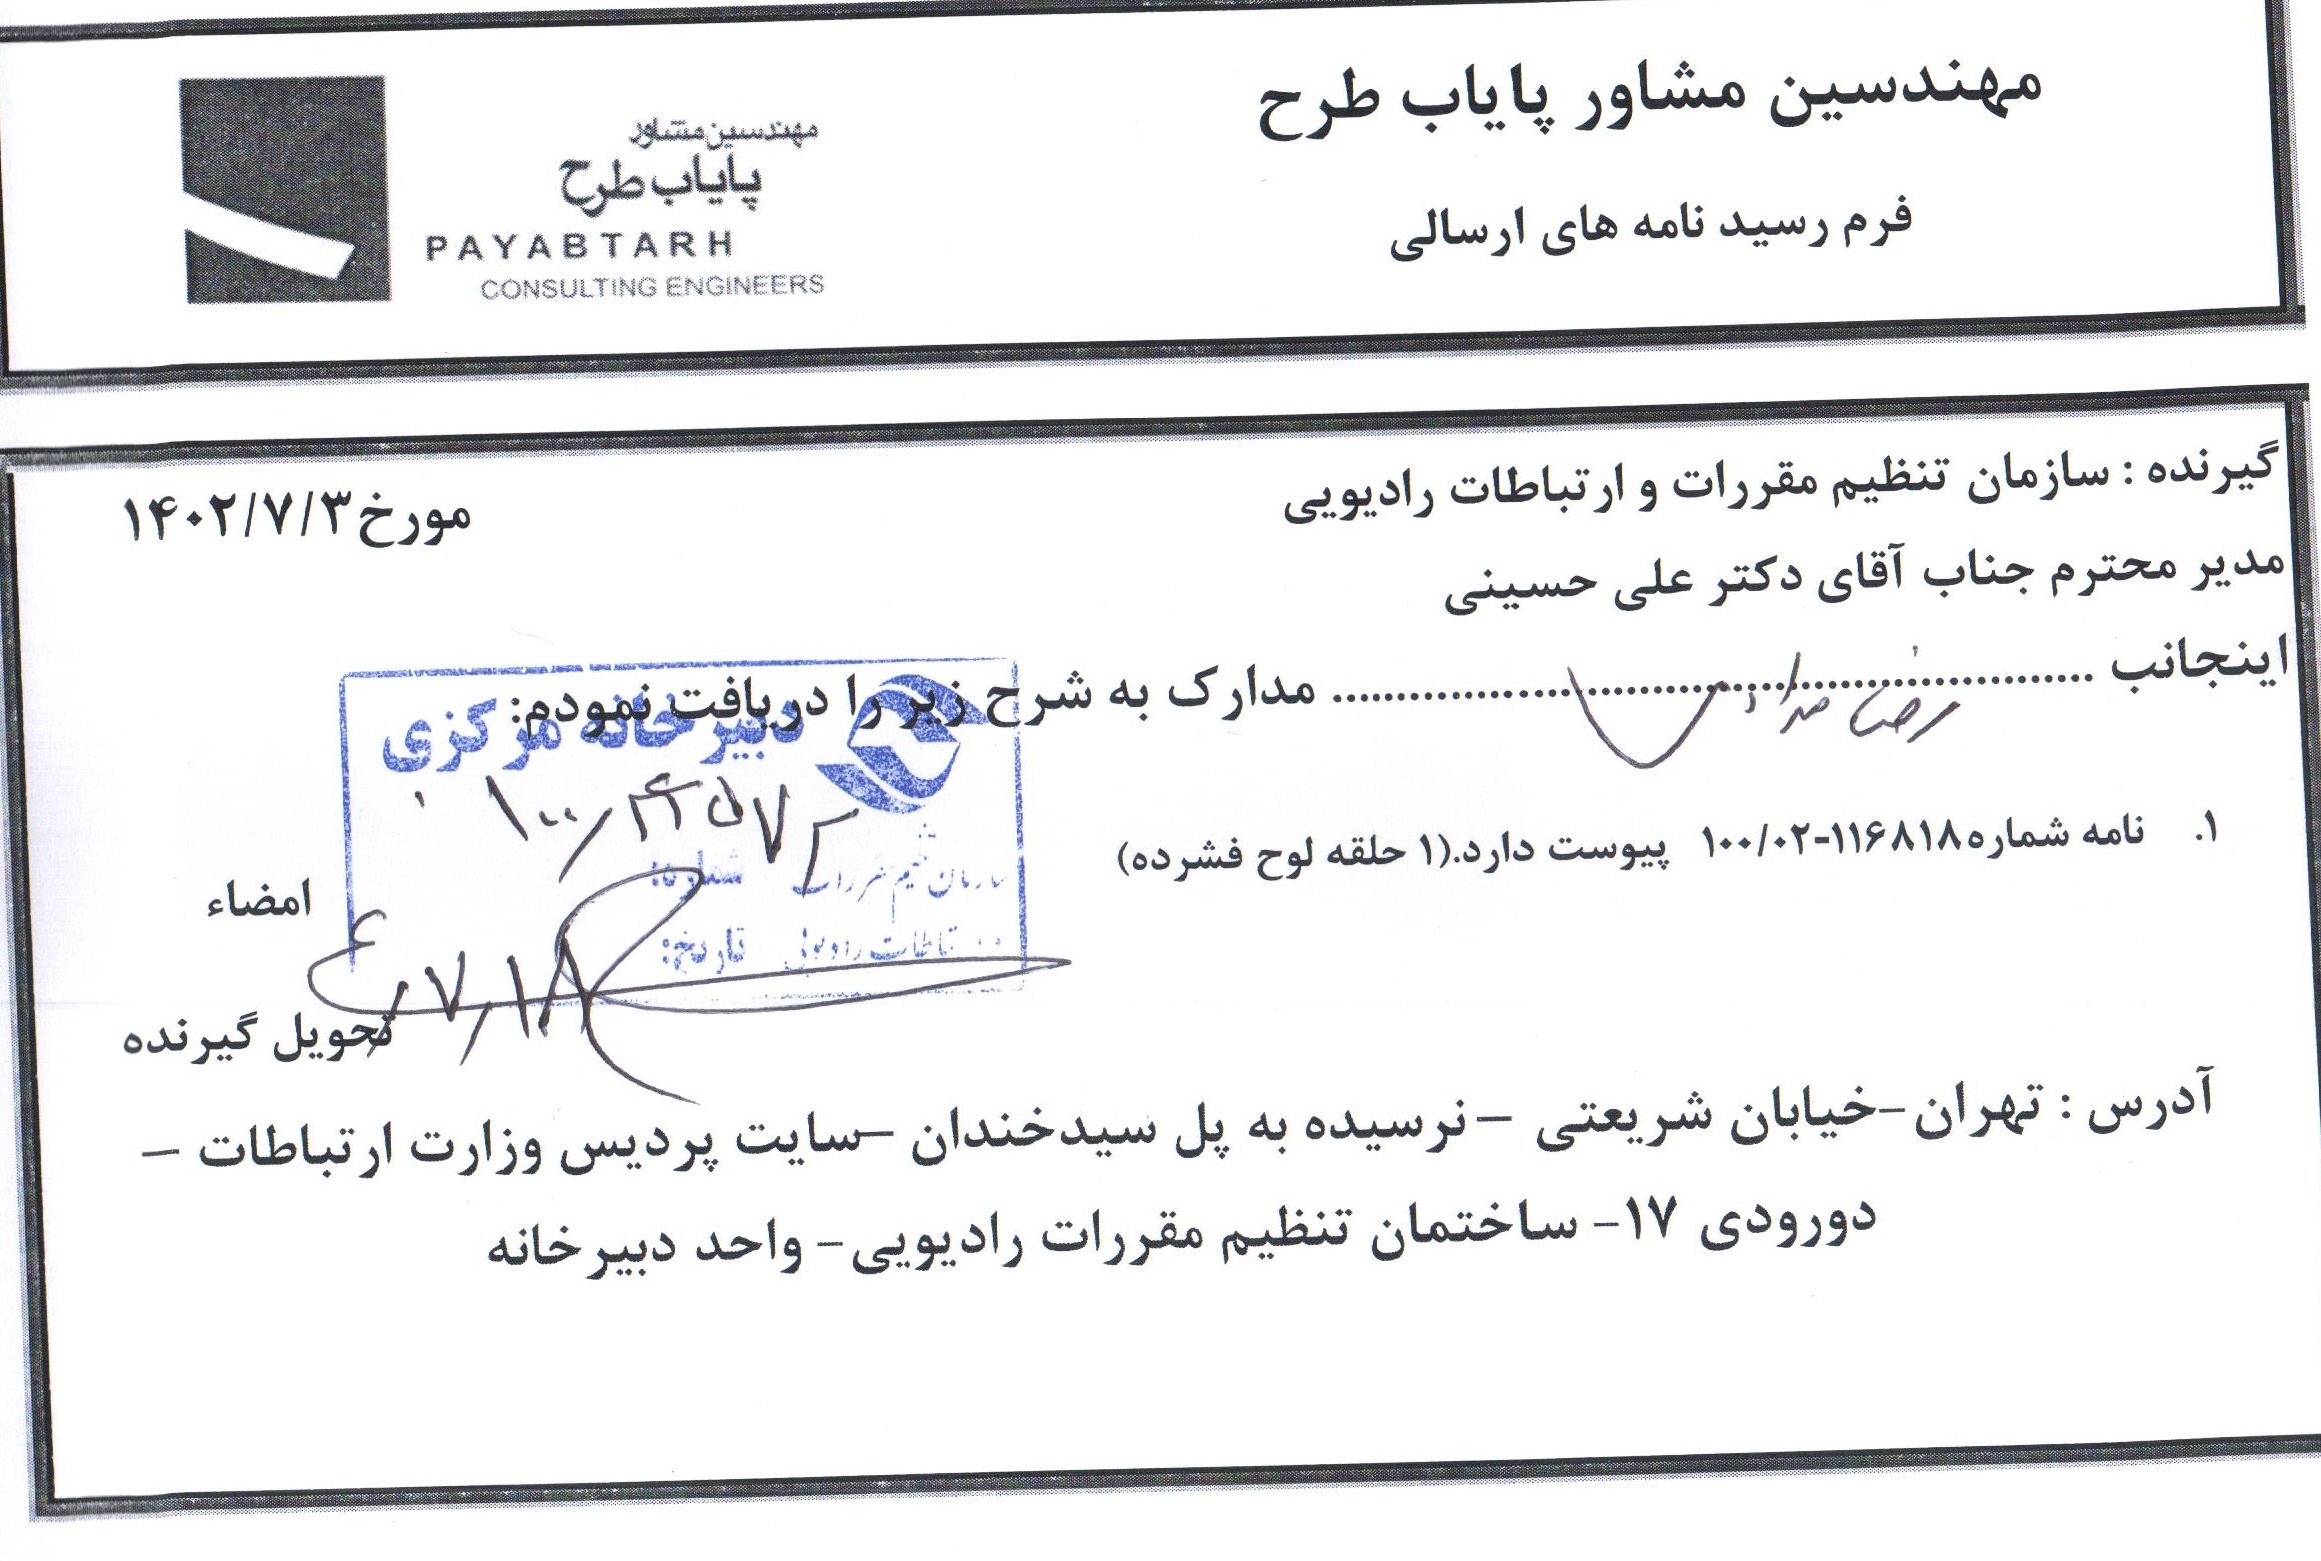 مهندسین مشاور پایاب طرح
فرم رسید نامه های ارسالی
مهندسین مشاور
پایاب طرح
PAYABTARH
CONSULTING ENGINEERS
گیرنده : سازمان تنظیم مقررات و ارتباطات رادیویی
مورخ۱۴۰۲/۷/۳
مدیر محترم جناب آقای دکتر علی حسینی
اینجانب ........................................................... مدارک به شرح زیر را دریافت نمودم:
دبیرخانه مرکزی
۱. نامه شماره۱۱۶۸۱۸-۱۰۰/۰۲ پیوست دارد.(۱ حلقه لوح فشرده)
شماره:
سازمان تنظیم مقررات
امضاء
تاریخ:
و ارتباطات رادیویی
تحویل گیرنده
آدرس : تهران –خیابان شریعتی – نرسیده به پل سیدخندان –سایت پردیس وزارت ارتباطات –
دورودی ۱۷– ساختمان تنظیم مقررات رادیویی– واحد دبیرخانه